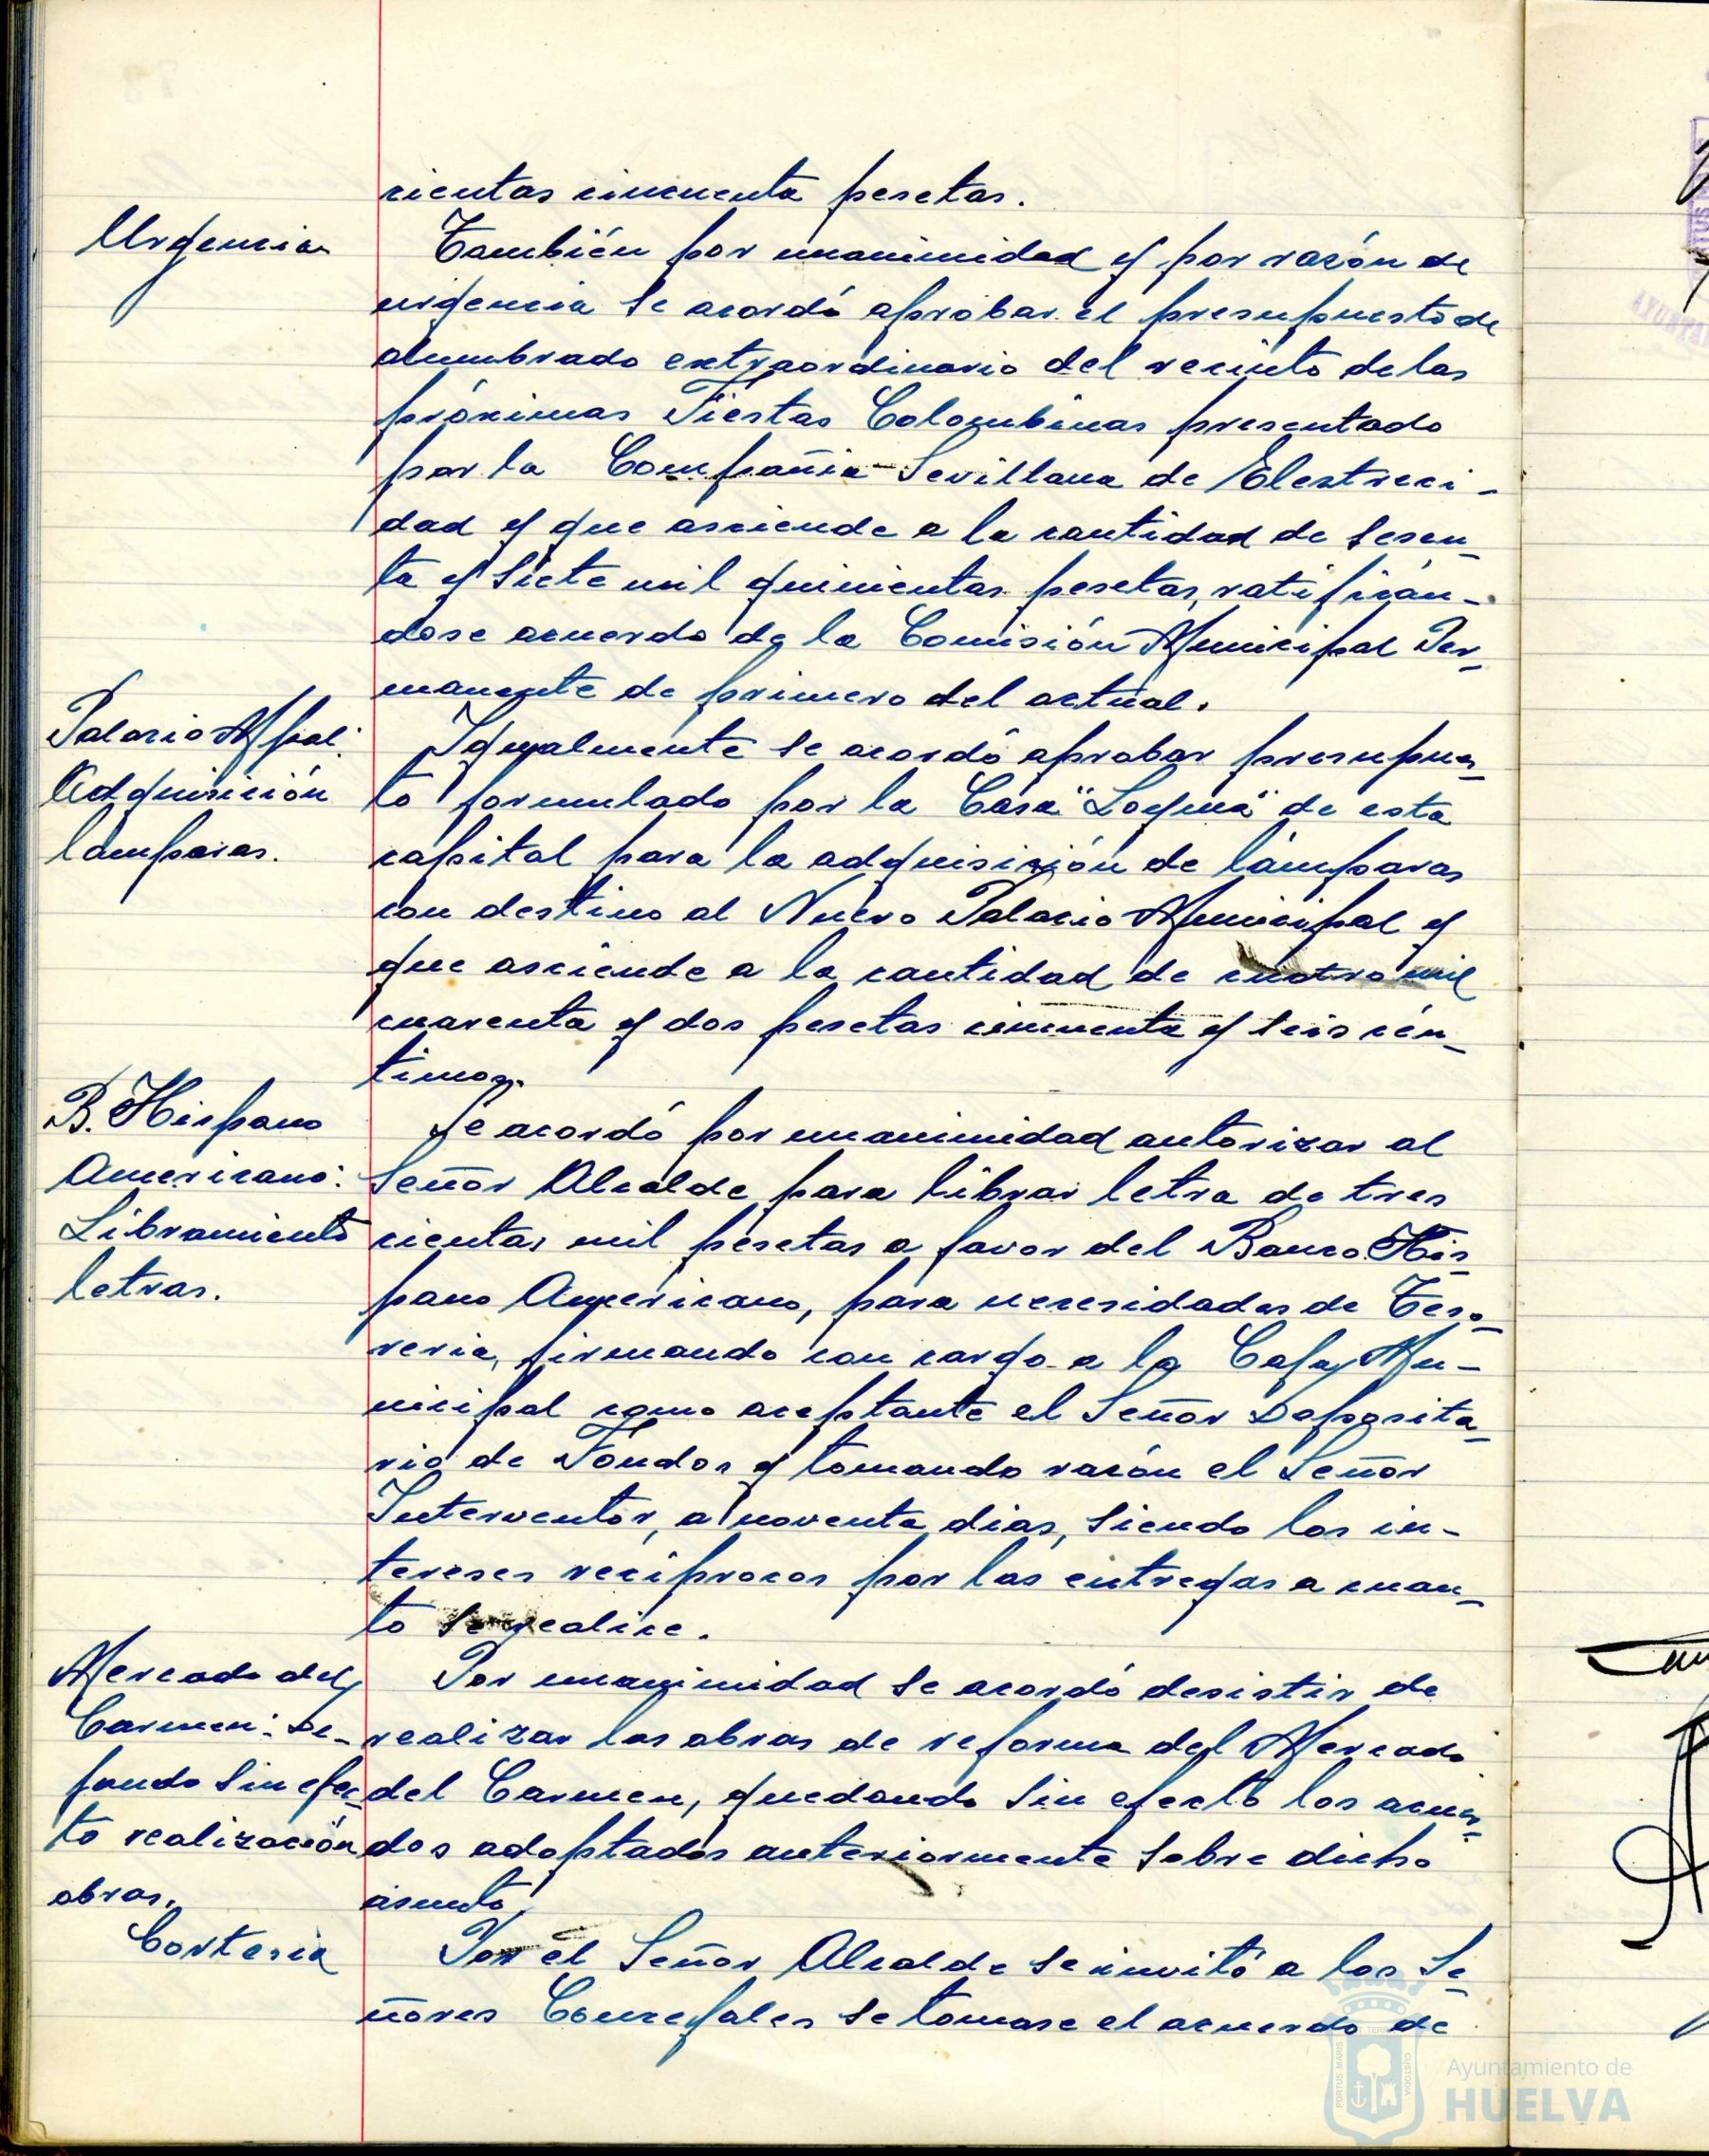 cientas cincuenta pesetas.
Urgencia
También por unanimidad y por razón de
urgencia se acordó aprobar el presupuesto de
alumbrado extraordinario del recinto de las
próximas Fiestas Colombinas presentado
por la Compañia Sevillana de Electrici-
dad y que asciende a la cantidad de sesen-
ta y siete mil quinientas pesetas, ratificán-
dose acuerdo de la Comisión Municipal Per-
manente de primero del actual.
Palacio Mpal.
Adquisición
lamparas.
Igualmente se acordó aprobar presupues-
to formulado por la Casa de esta
capital para la adquisición de lámparas
con destino al Nuevo Palacio Municipal y
que asciende a la cantidad de cuatro mil
cuarenta y dos pesetas cincuenta y seis cén-
timos.
B. Hispano
Americano:
Libramiento
letras.
Se acordó por unanimidad autorizar al
Señor Alcalde para librar letra de tres
cientas mil pesetas a favor del Banco His-
pano Americano, para necesidades de Teso-
reria, firmando con cargo a la Caja Mu-
nicipal como aceptante el Señor Deposita-
rio de Fondos y tomando razón el Señor
Interventor, a noventa dias, siendo los in-
tereses reciprocos por las entregas a cuan-
to se realice.
Mercado del
Carmen: De-
jando sin efec-
to realización
obras.
Por unanimidad se acordó desistir de
realizar las obras de reforma del Mercado
del Carmen, quedando sin efecto los acuer-
dos adoptados anteriormente sobre dicho
asunto.
Cortesia
Por el Señor Alcalde se invitó a los Se-
ñores Concejales se tomase el acuerdo de
Ayuntamiento de
HUELVA